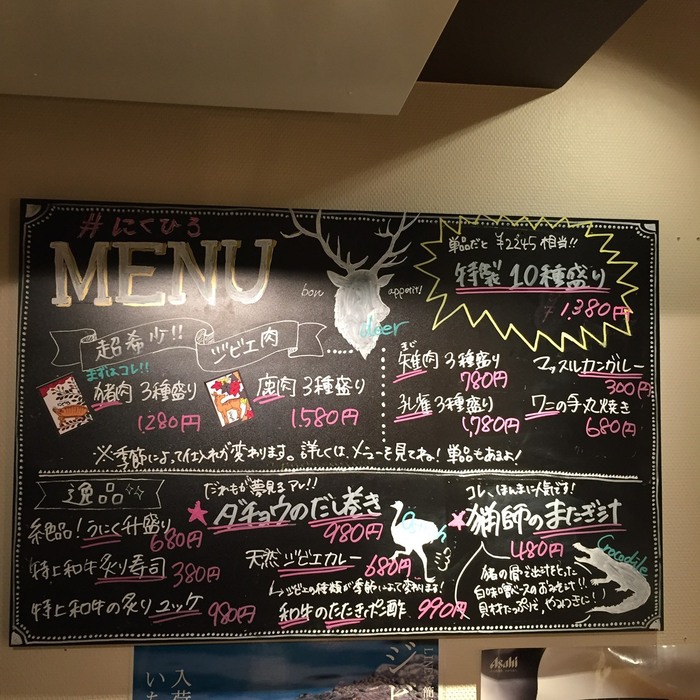 #にくひろ
MENU
bon appetit!
deer
単品だと ¥2245 相当!!
特製 10種盛り
¥1,380円
超希少!! ジビエ肉
まずはコレ!!
猪肉 3種盛り
1280円
鹿肉 3種盛り
1.580円
きじ
雉肉 3種盛り
780円
孔雀 3種盛り
1,780円
マッスルカンガルー
300円
ワニの手丸焼き
680円
※季節によって仕入れが変わります。詳しくは、メニューを見てね！単品もあるよ！
逸品
絶品！うにく升盛り
680円
特上和牛炙り寿司 380円
特上和牛の炙りユッケ 980円
だれもが夢見るアレ!!
★ダチョウのだし巻き
980円
天然ジビエカレー 680円
ジビエの種類が季節によって変わります!
和牛のたたきポン酢 990円
コレ、ほんまに人気です!
★猟師のまたぎ汁
480円
猪の骨で出汁をとった
白味噌ベースのおみそ汁!!
具材たっぷりで、やみつきに!!
Crocodile
Asahi
入荷
いち
ジビ
LINE